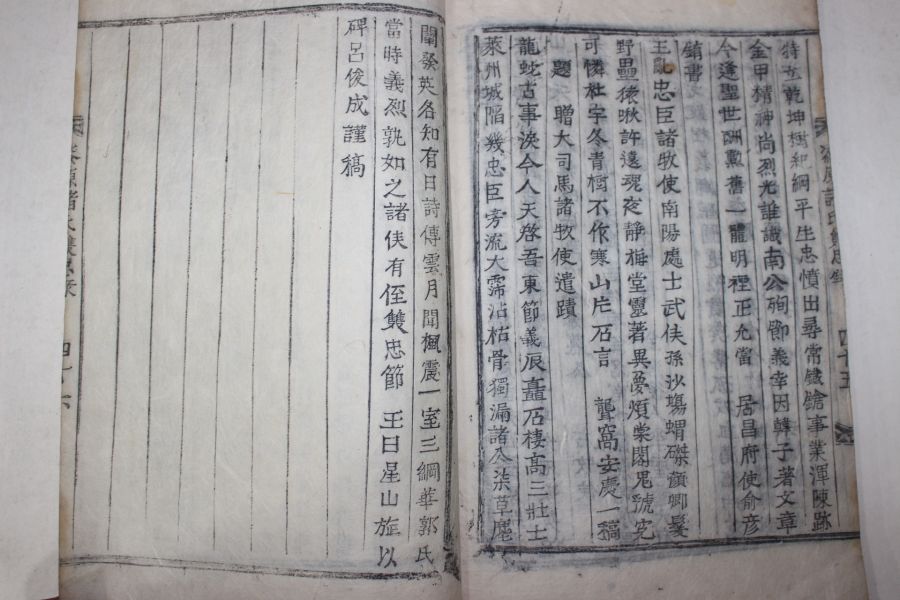 特立乾坤樹紀綱平生忠憤出尋常鐵鎗事業渾陳跡
金甲精神尚烈光誰識南公殉節義幸因韓子著文章
今逢聖世酬勲舊一體明禋正允當 居昌府使俞彦
銷書
王亂忠臣諸牧使南陽處士武侠孫沙塲蝟磔顔卿髮
野壘猿啾許遠魂夜静梅堂靈著異夢煩棠閣鬼號寃
可憐杜宇冬青樹不作寒山片石言 聾窩安慶一稿
題 贈大司馬諸牧使遺蹟
龍蛇古事淚今人天啓吾東節義辰矗石棲高三壯士
萊州城陷幾忠臣旁流大霈沾枯骨獨漏諸公柒草塵
闡發英名知有日詩傳雲月聞楓宸一室三綱華郭氏
當時義烈孰如之諸侠有侄雙忠節 王曰星山旌以
碑呂俊成謹稿
四十五
四十六